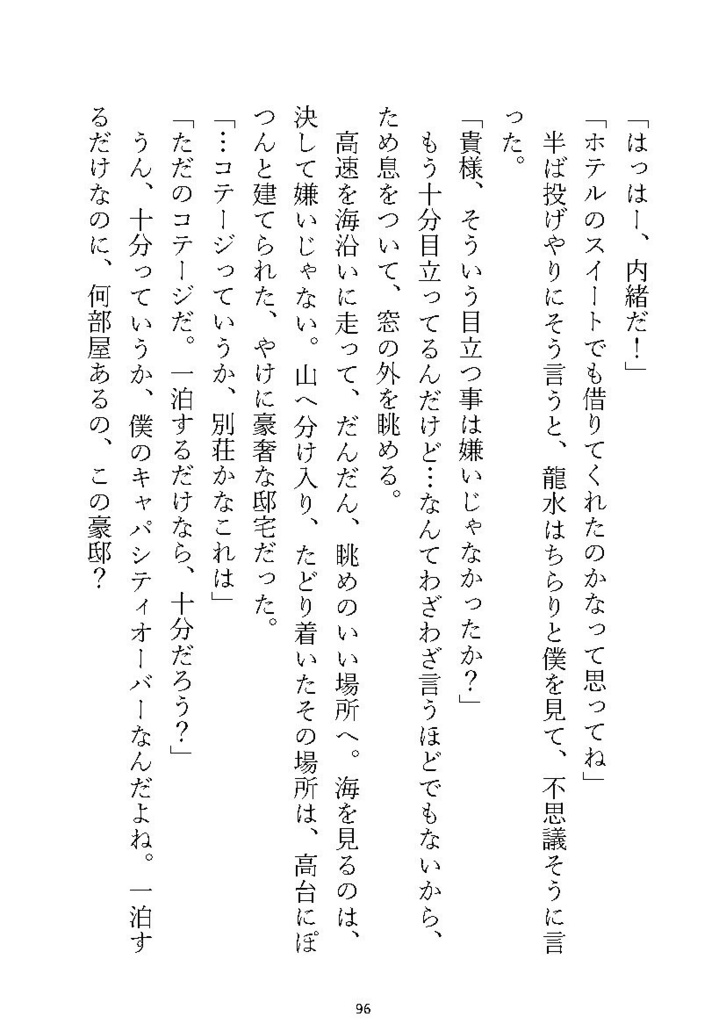 「はっはー、内緒だ！」
「ホテルのスイートでも借りてくれたのかなって思ってね」
半ば投げやりにそう言うと、龍水はちらりと僕を見て、不思議そうに言
った。
「貴様、そういう目立つ事は嫌いじゃなかったか？」
もう十分目立ってるんだけど…なんてわざわざ言うほどでもないから、
ため息をついて、窓の外を眺める。
高速を海沿いに走って、だんだん、眺めのいい場所へ。海を見るのは、
決して嫌いじゃない。山へ分け入り、たどり着いたその場所は、高台にぽ
つんと建てられた、やけに豪奢な邸宅だった。
「…コテージっていうか、別荘かなこれは」
「ただのコテージだ。一泊するだけなら、十分だろう？」
うん、十分っていうか、僕のキャパシティオーバーなんだよね。一泊す
るだけなのに、何部屋あるの、この豪邸？
96